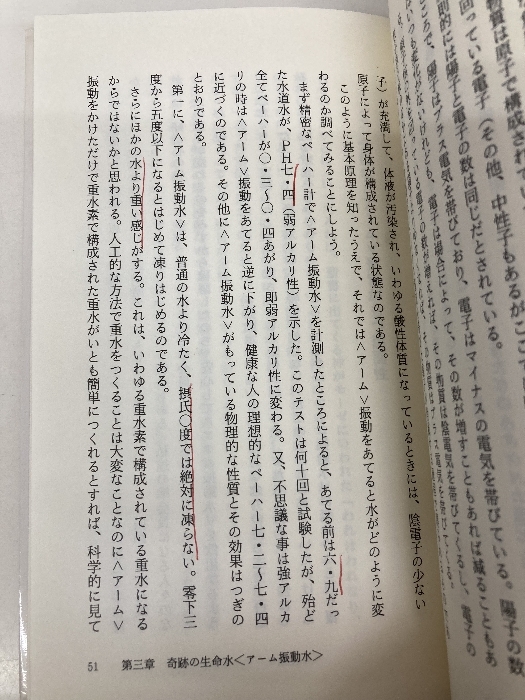 物質は原子で構成されて
回っている電子(その他、中性子もあるがこ
前的には陽子と電子の数は同じだとされている。
ころで、陽子はプラス電気を帯びており、電子はマイナスの電気を帯びている。陽子の数
いつも変化がないけれども、電子は場合によって、その数が増すこともあれば減ることもあ
ている電子の数が増えれば、その物質は陰電気を帯びてくるし、電子の
子)が充満して、体液が汚染され、いわゆる酸性体質になっているときには、陰電子の少ない
原子によって身体が構成されている状態なのである。
このように基本原理を知ったうえで、それでは<アーム>振動をあてると水がどのように変
わるのか調べてみることにしよう。
まず精密なペーハー計で<アーム振動水>を計測したところによると、あてる前は六・九だっ
た水道水が、PH七・四(弱アルカリ性)を示した。このテストは何十回と試験したが、殆ど
全てペーハーが〇・三~〇・四あがり、即弱アルカリ性に変わる。又、不思議な事は強アルカ
リの時は<アーム>振動をあてると逆に下がり、健康な人の理想的なペーハー七・二~七・四
に近づくのである。その他に<アーム振動水>がもっている物理的な性質とその効果はつぎの
とおりである。
第一に、<アーム振動水>は、普通の水より冷たく、摂氏〇度では絶対に凍らない。零下三
度から五度以下になるとはじめて凍りはじめるのである。
さらにほかの水より重い感じがする。これは、いわゆる重水素で構成されている重水になる
からではないかと思われる。人工的な方法で重水をつくることは大変なことなのに<アーム>
振動をかけただけで重水素で構成された重水がいとも簡単につくれるとすれば、科学的に見て
51 第三章 奇跡の生命水<アーム振動水>